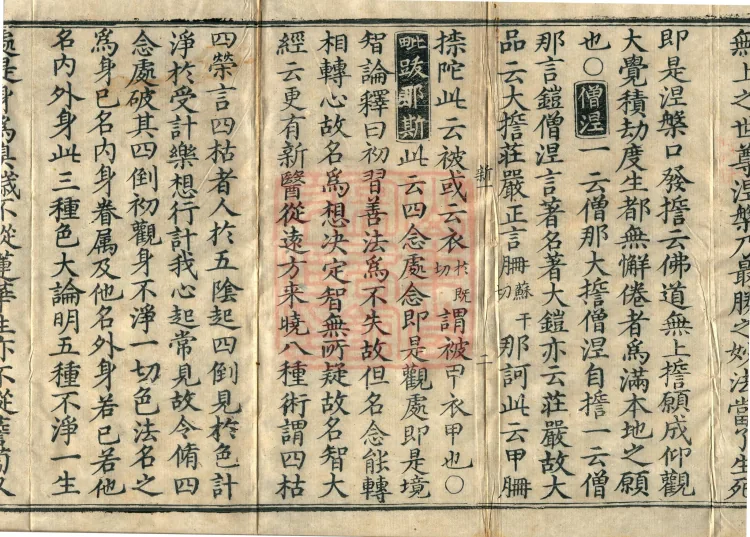 無上之世尊涅槃乃最勝之妙法當了生死
即是涅槃口發誓云佛道無上誓願成仰觀
大覺積劫度生都無懈倦者爲滿本地之願
也○僧涅一云僧那大誓僧涅自誓一云僧
那言鎧僧涅言著名著大鎧亦云莊嚴故大
品云大誓莊嚴正言珊蘇干切那訶此云甲珊
新一 二
捺陀此云被或云衣於既切謂被甲衣甲也○
毗跋耶斯此云四念處念即是觀處即是境
智論釋曰初習善法爲不失故但名念能轉
相轉心故名爲想決定智無所疑故名智大
經云更有新醫從遠方来曉八種術謂四枯
四榮言四枯者人於五陰起四倒見於色計
淨於受計樂想行計我心起常見故令脩四
念處破其四倒初觀身不淨一切色法名之
爲身已名內身眷属及他名外身若已若他
名內外身此三種色大論明五種不淨一生
處是身爲臭穢不從蓮華生亦不從薝蔔又